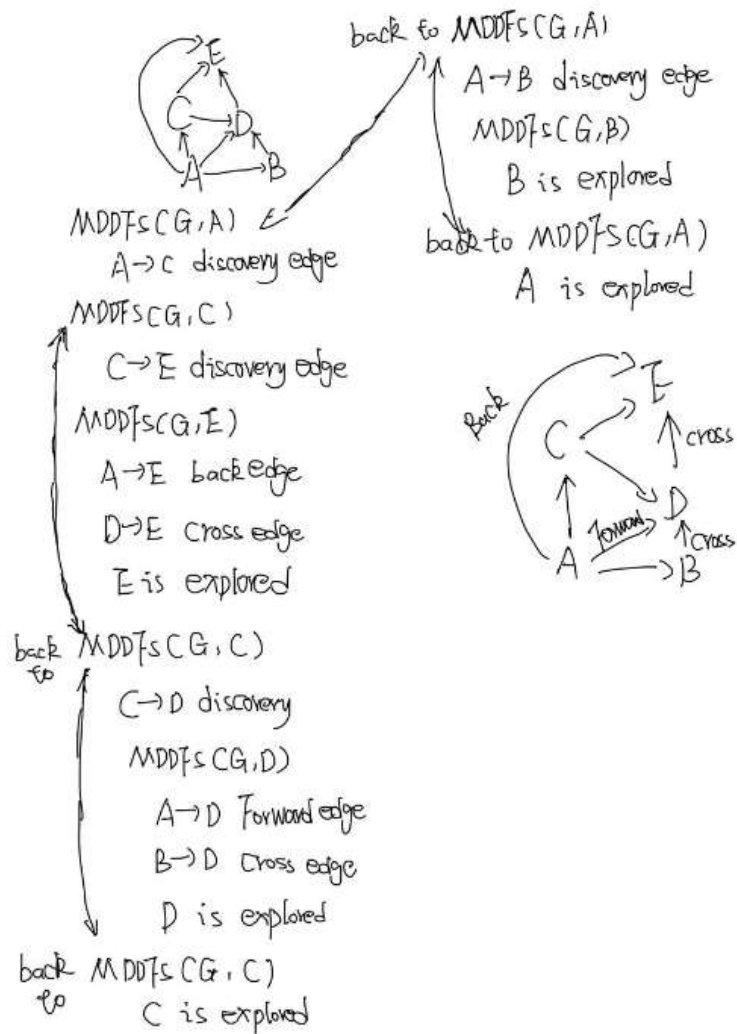 E
C
D
A
B
MDDFS(G,A)
A→C discovery edge
MDDFS(G,C)
C→E discovery edge
MDDFS(G,E)
A→E back edge
D→E cross edge
E is explored
back to MDDFS(G,C)
C→D discovery
MDDFS(G,D)
A→D Forward edge
B→D cross edge
D is explored
back to MDDFS(G,C)
C is explored
back to MDDFS(G,A)
A→B discovery edge
MDDFS(G,B)
B is explored
back to MDDFS(G,A)
A is explored
Back
E
C
cross
D
Forward
cross
A
B